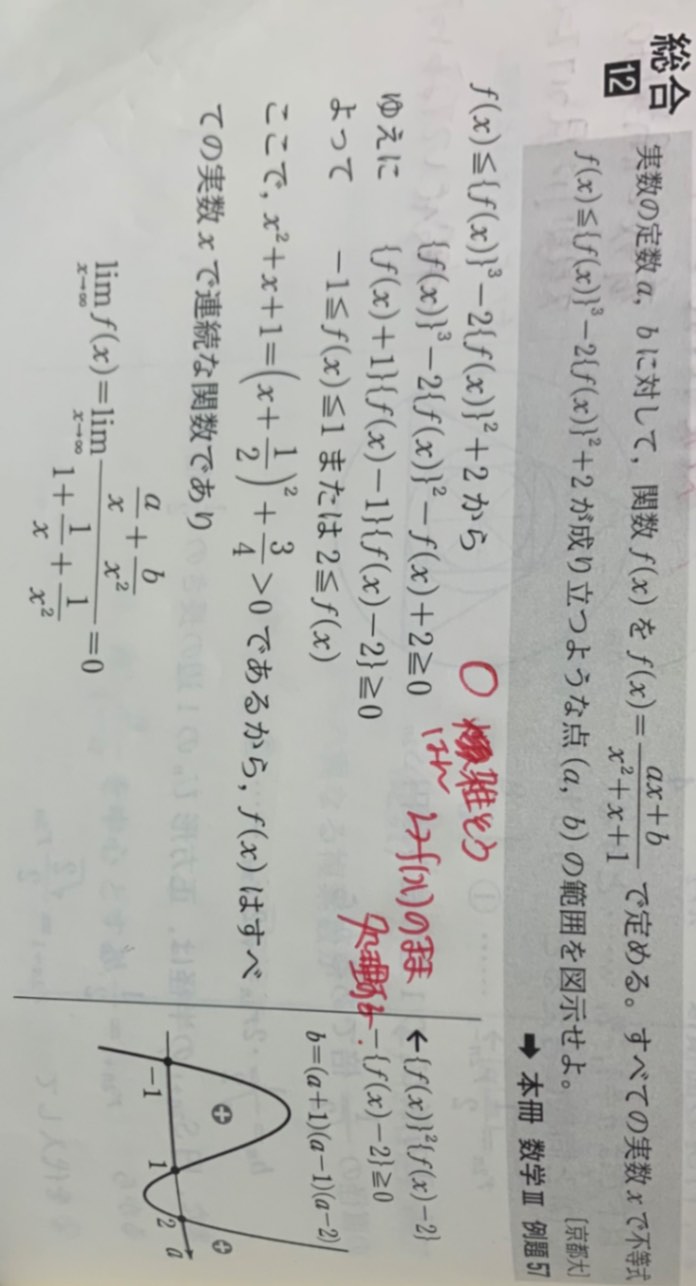 総合 12
実数の定数 a, b に対して, 関数 f(x) を f(x)=\frac{ax+b}{x^2+x+1} で定める。すべての実数 x で不等式
f(x)≦{f(x)}^3−2{f(x)}^2+2 が成り立つような点 (a, b) の範囲を図示せよ。 [京都大]
➡ 本冊 数学Ⅲ 例題 57
f(x)≦{f(x)}^3−2{f(x)}^2+2 から
ゆえに {f(x)}^3−2{f(x)}^2−f(x)+2≧0
よって {f(x)+1}{f(x)−1}{f(x)−2}≧0
−1≦f(x)≦1 または 2≦f(x)
ここで, x^2+x+1=(x+\frac{1}{2})^2+\frac{3}{4}>0 であるから, f(x) はすべ
ての実数 x で連続な関数であり
\lim_{x→∞} f(x)=\lim_{x→∞} \frac{\frac{a}{x}+\frac{b}{x^2}}{1+\frac{1}{x}+\frac{1}{x^2}}=0
←{f(x)}^2{f(x)−2}
−{f(x)−2}≧0
b=(a+1)(a−1)(a−2)
⊕ ⊕
−1 1 2 a